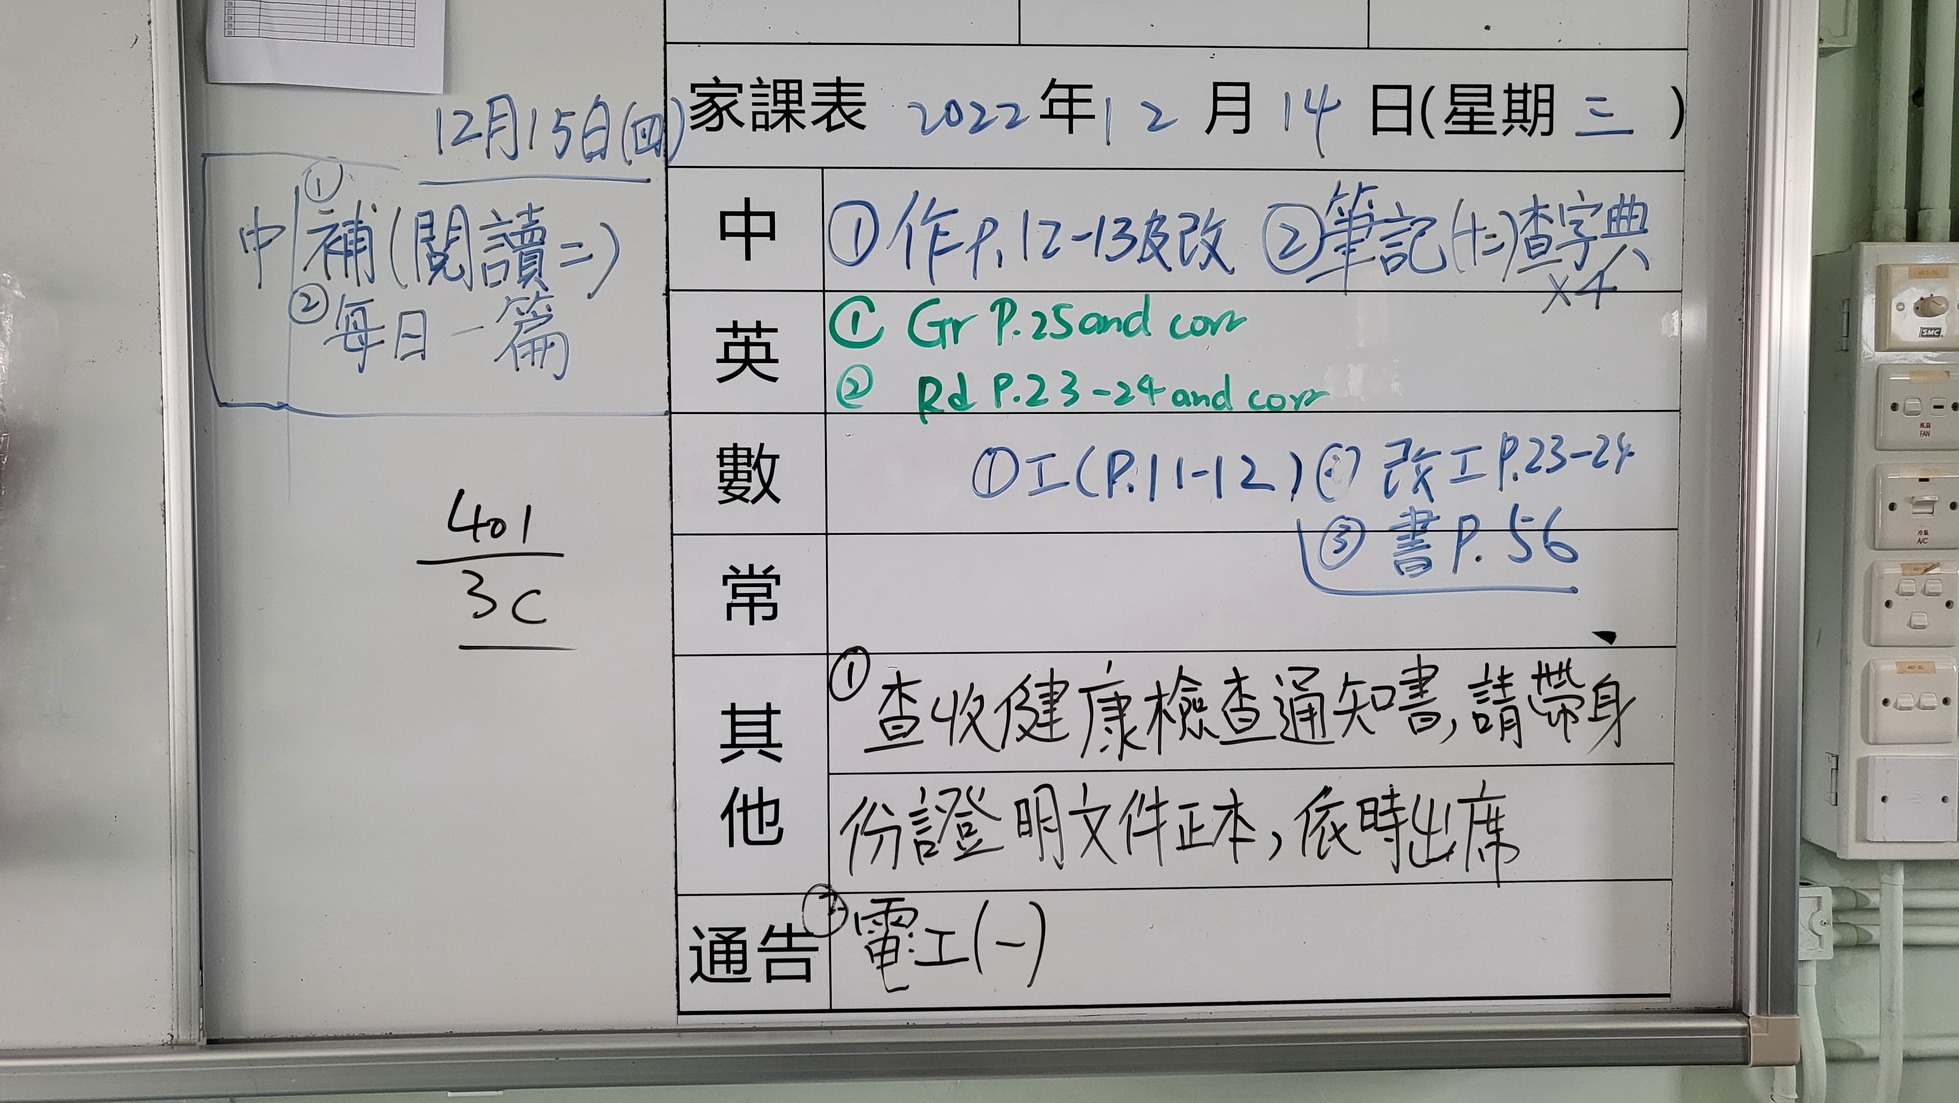 家課表 2022年12月14日(星期三)
中 ①作P.12-13及改 ②筆記(十二)查字典
x4
英 ① Gr P.25 and corr
② Rd P.23-24 and corr
數 ①工(P.11-12) ② 改工P.23-24
③ 書P.56
常
其他 ①查收健康檢查通知書,請帶身
份證明文件正本,依時出席
通告 ②電工(一)
12月15日(四)
中 ①補(閱讀二)
②每日一篇
401
3C
SMC
風扇
FAN
冷氣
A/C